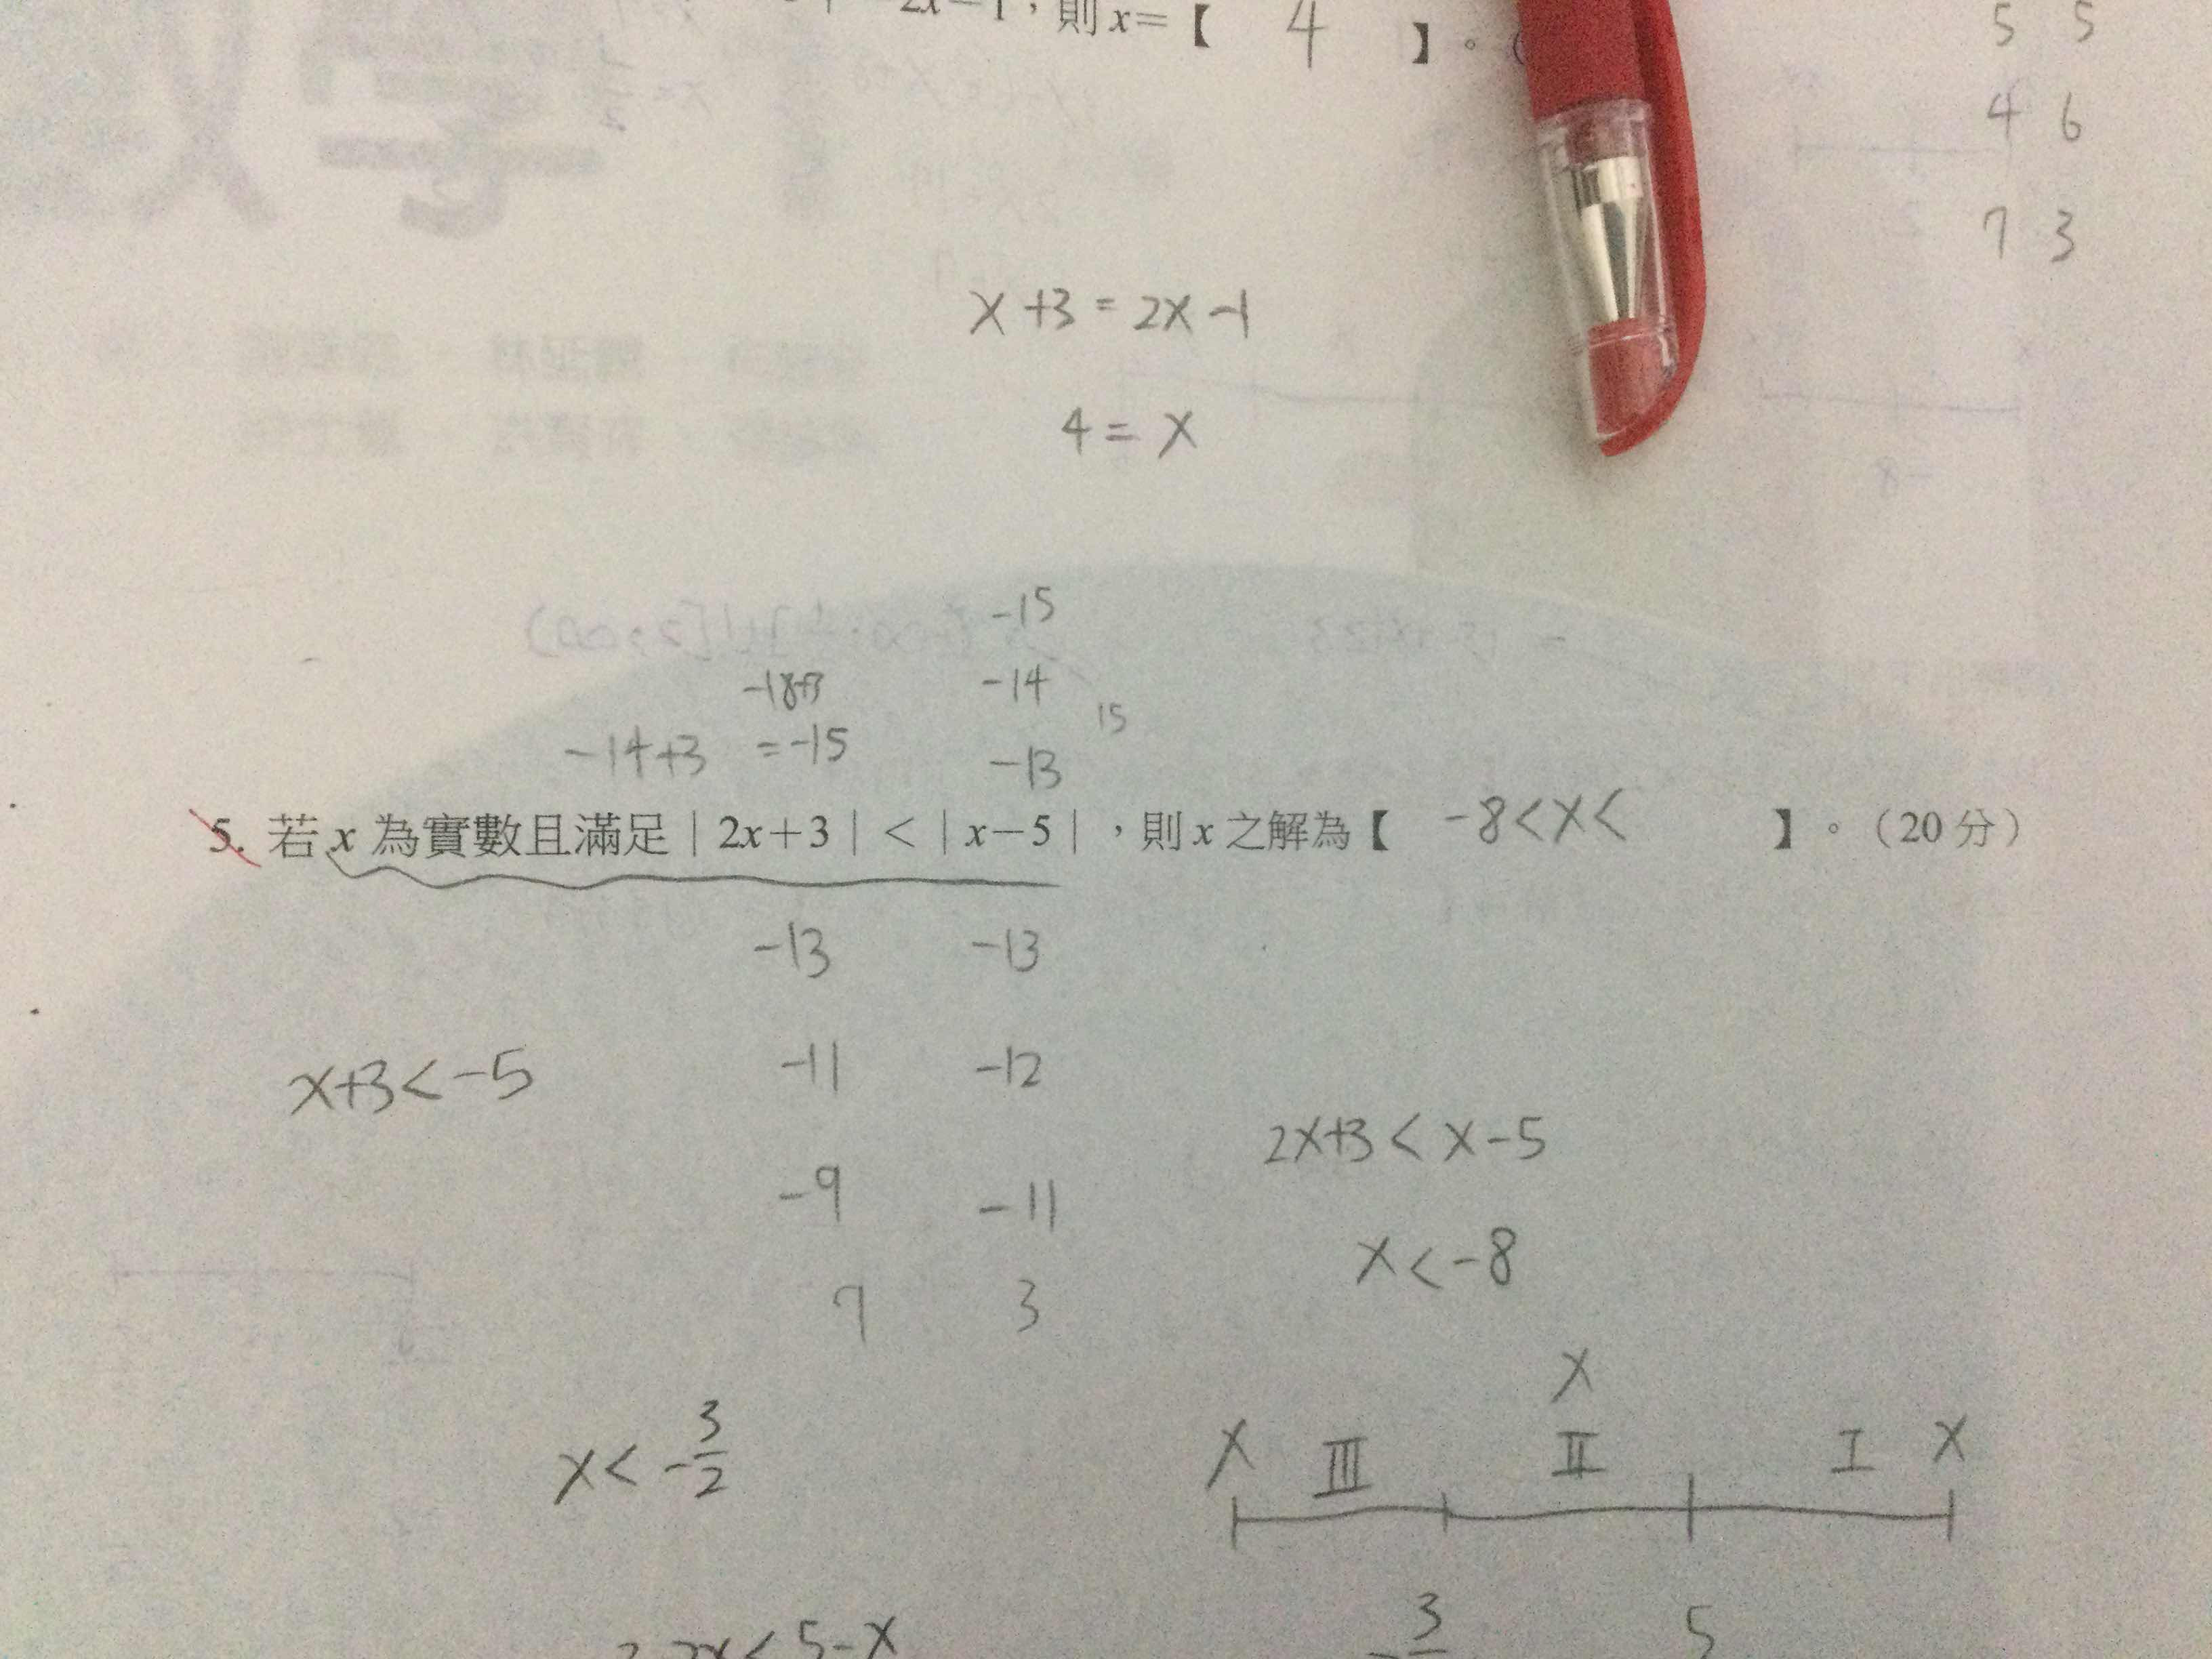 2x－1，則 x＝【 4 】。
5 5
4 6
7 3
x+3=2x-1
4=x
-15
-18+3 -14
15
-14+3 =-15 -13
5. 若 x 為實數且滿足｜2x＋3｜＜｜x－5｜，則 x 之解為【 -8<x< 】。（20 分）
-13 -13
x+3<-5 -11 -12
2x+3<x-5
-9 -11
x<-8
7 3
x<-3/2
x
x III II I x
3 5
2x<5-x